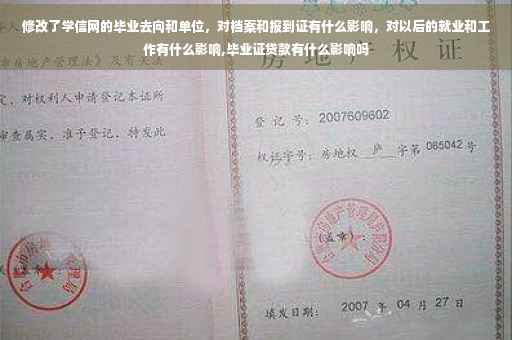 修改了学信网的毕业去向和单位，对档案和报到证有什么影响，对以后的就业和工
作有什么影响,毕业证贷款有什么影响吗
房地产管理法》及有关
定，对权利人申请登记本证所
审查属实，准予登记，特发此
房地产权证
登记号：2007609602
权证字号：房地权 庐 字第 085042 号
（盖章）：
填发日期：2007 年 04 月 27 日